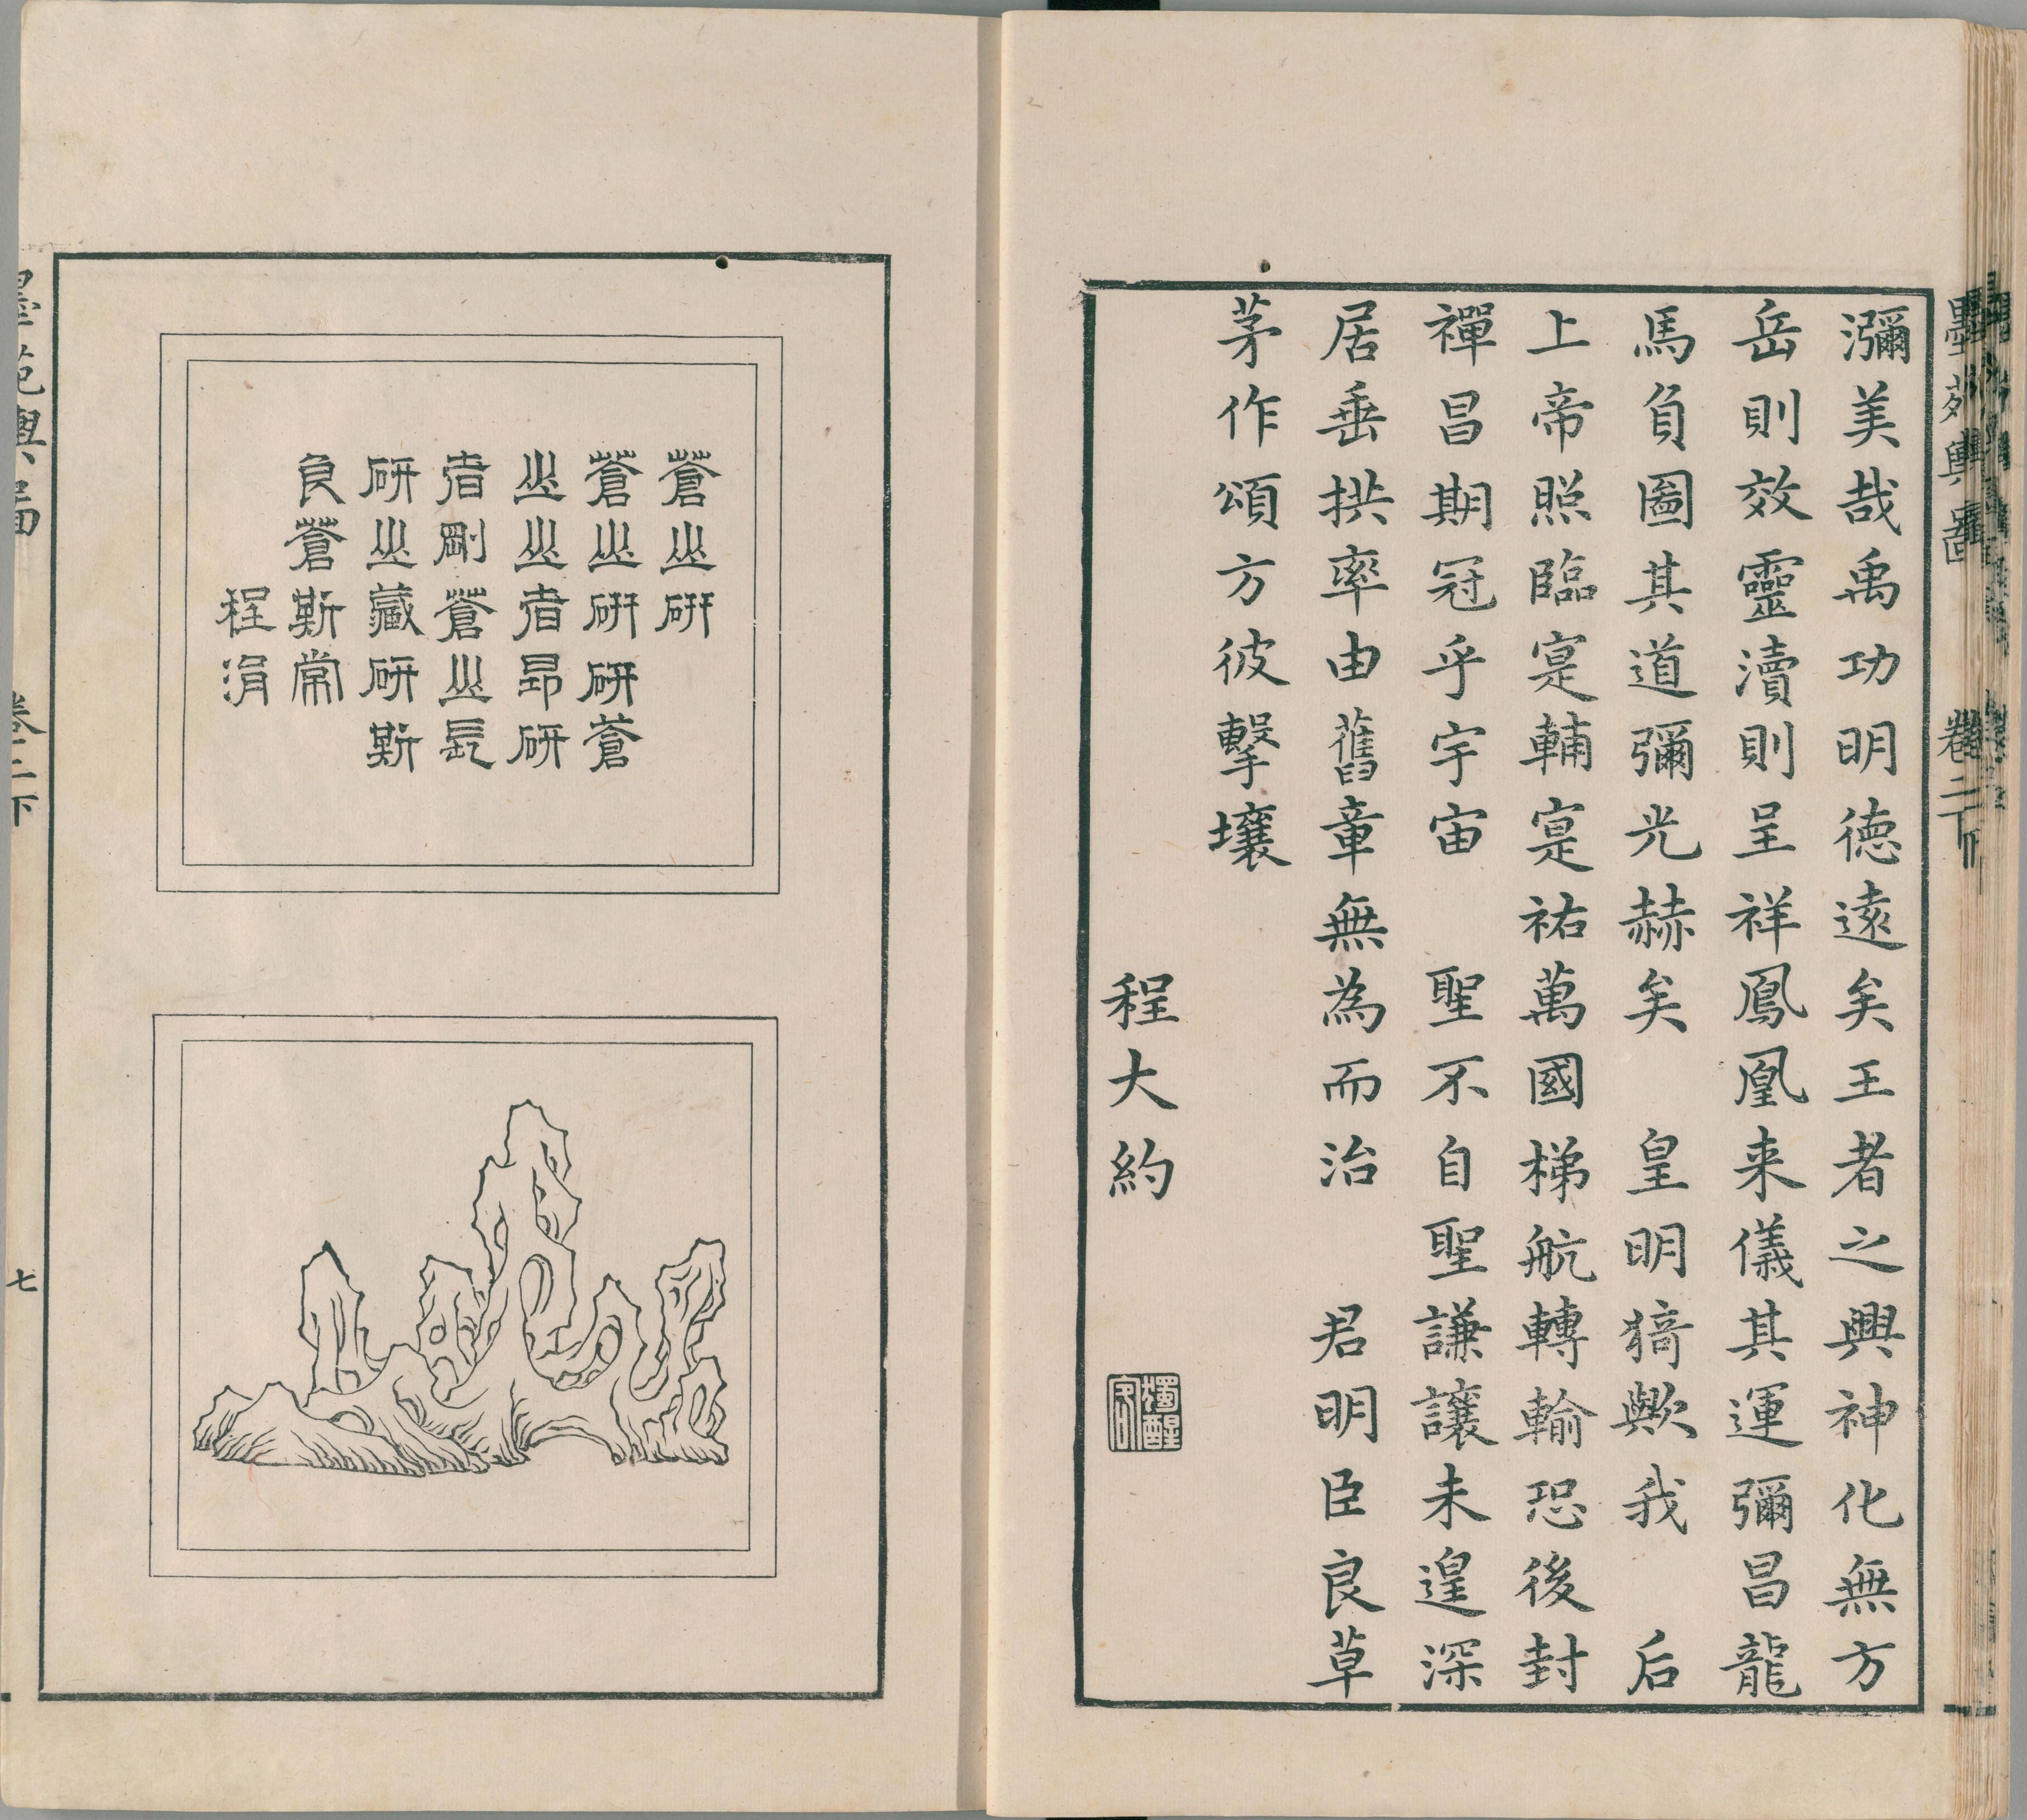 墨苑輿啚 卷二下
瀰美哉禹功明德遠矣王者之興神化無方
岳則效靈瀆則呈祥鳳凰来儀其運彌昌龍
馬負圖其道彌光赫矣 皇明猗歟我 后
上帝照臨寔輔寔祐萬國梯航轉輸恐後封
禪昌期冠乎宇宙 聖不自聖謙讓未遑深
居垂拱率由舊章無為而治 君明臣良草
茅作頌方彼擊壤
程大約
獨醒客
蒼山研
蒼山研研蒼
山山者昂研
者剛蒼山長
研山藏研斯
良蒼斯常
程涓
墨苑輿啚 卷二下 七